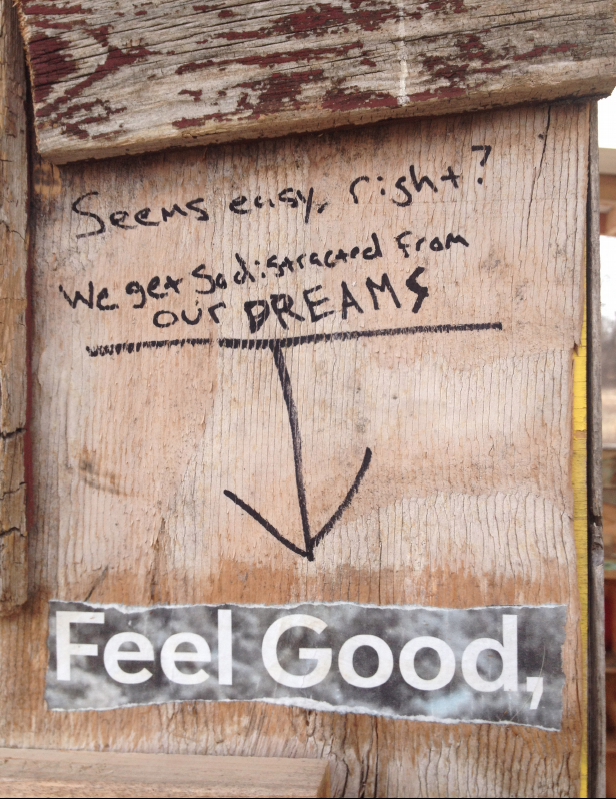 Seems easy, right?
We get so distracted from
our DREAMS
Feel Good,